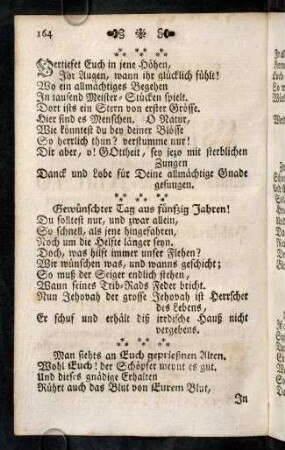 164
Vertiefet Euch in jene Höhen,
Ihr Augen, wann ihr glücklich fühlt!
Wo ein allmächtiges Begehen
In tausend Meister-Stücken spielt.
Dort ists ein Stern von erster Grösse.
Hier sind es Menschen. O Natur,
Wie könntest du bey deiner Blösse
So herrlich thun? verstumme nur!
Dir aber, o! GOttheit, sey jezo mit sterblichen
Zungen
Danck und Lobe für Deine allmächtige Gnade
gesungen.
Gewünschter Tag aus fünfzig Jahren!
Du solltest nur, und zwar allein,
So schnell, als jene hingefahren,
Noch um die Helfte länger seyn.
Doch, was hilft immer unser Flehen?
Wir wünschen was, und wanns geschicht;
So muß der Seiger endlich stehen,
Wann seines Trib-Rads Feder bricht.
Nun Jehovah der grosse Jehovah ist Herrscher
des Lebens,
Er schuf und erhält diß irrdische Hauß nicht
vergebens.
Man siehts an Euch geprießnen Alten.
Wohl Euch! der Schöpfer meynt es gut.
Und dieses gnädige Erhalten
Rührt auch das Blut von Eurem Blut,
In